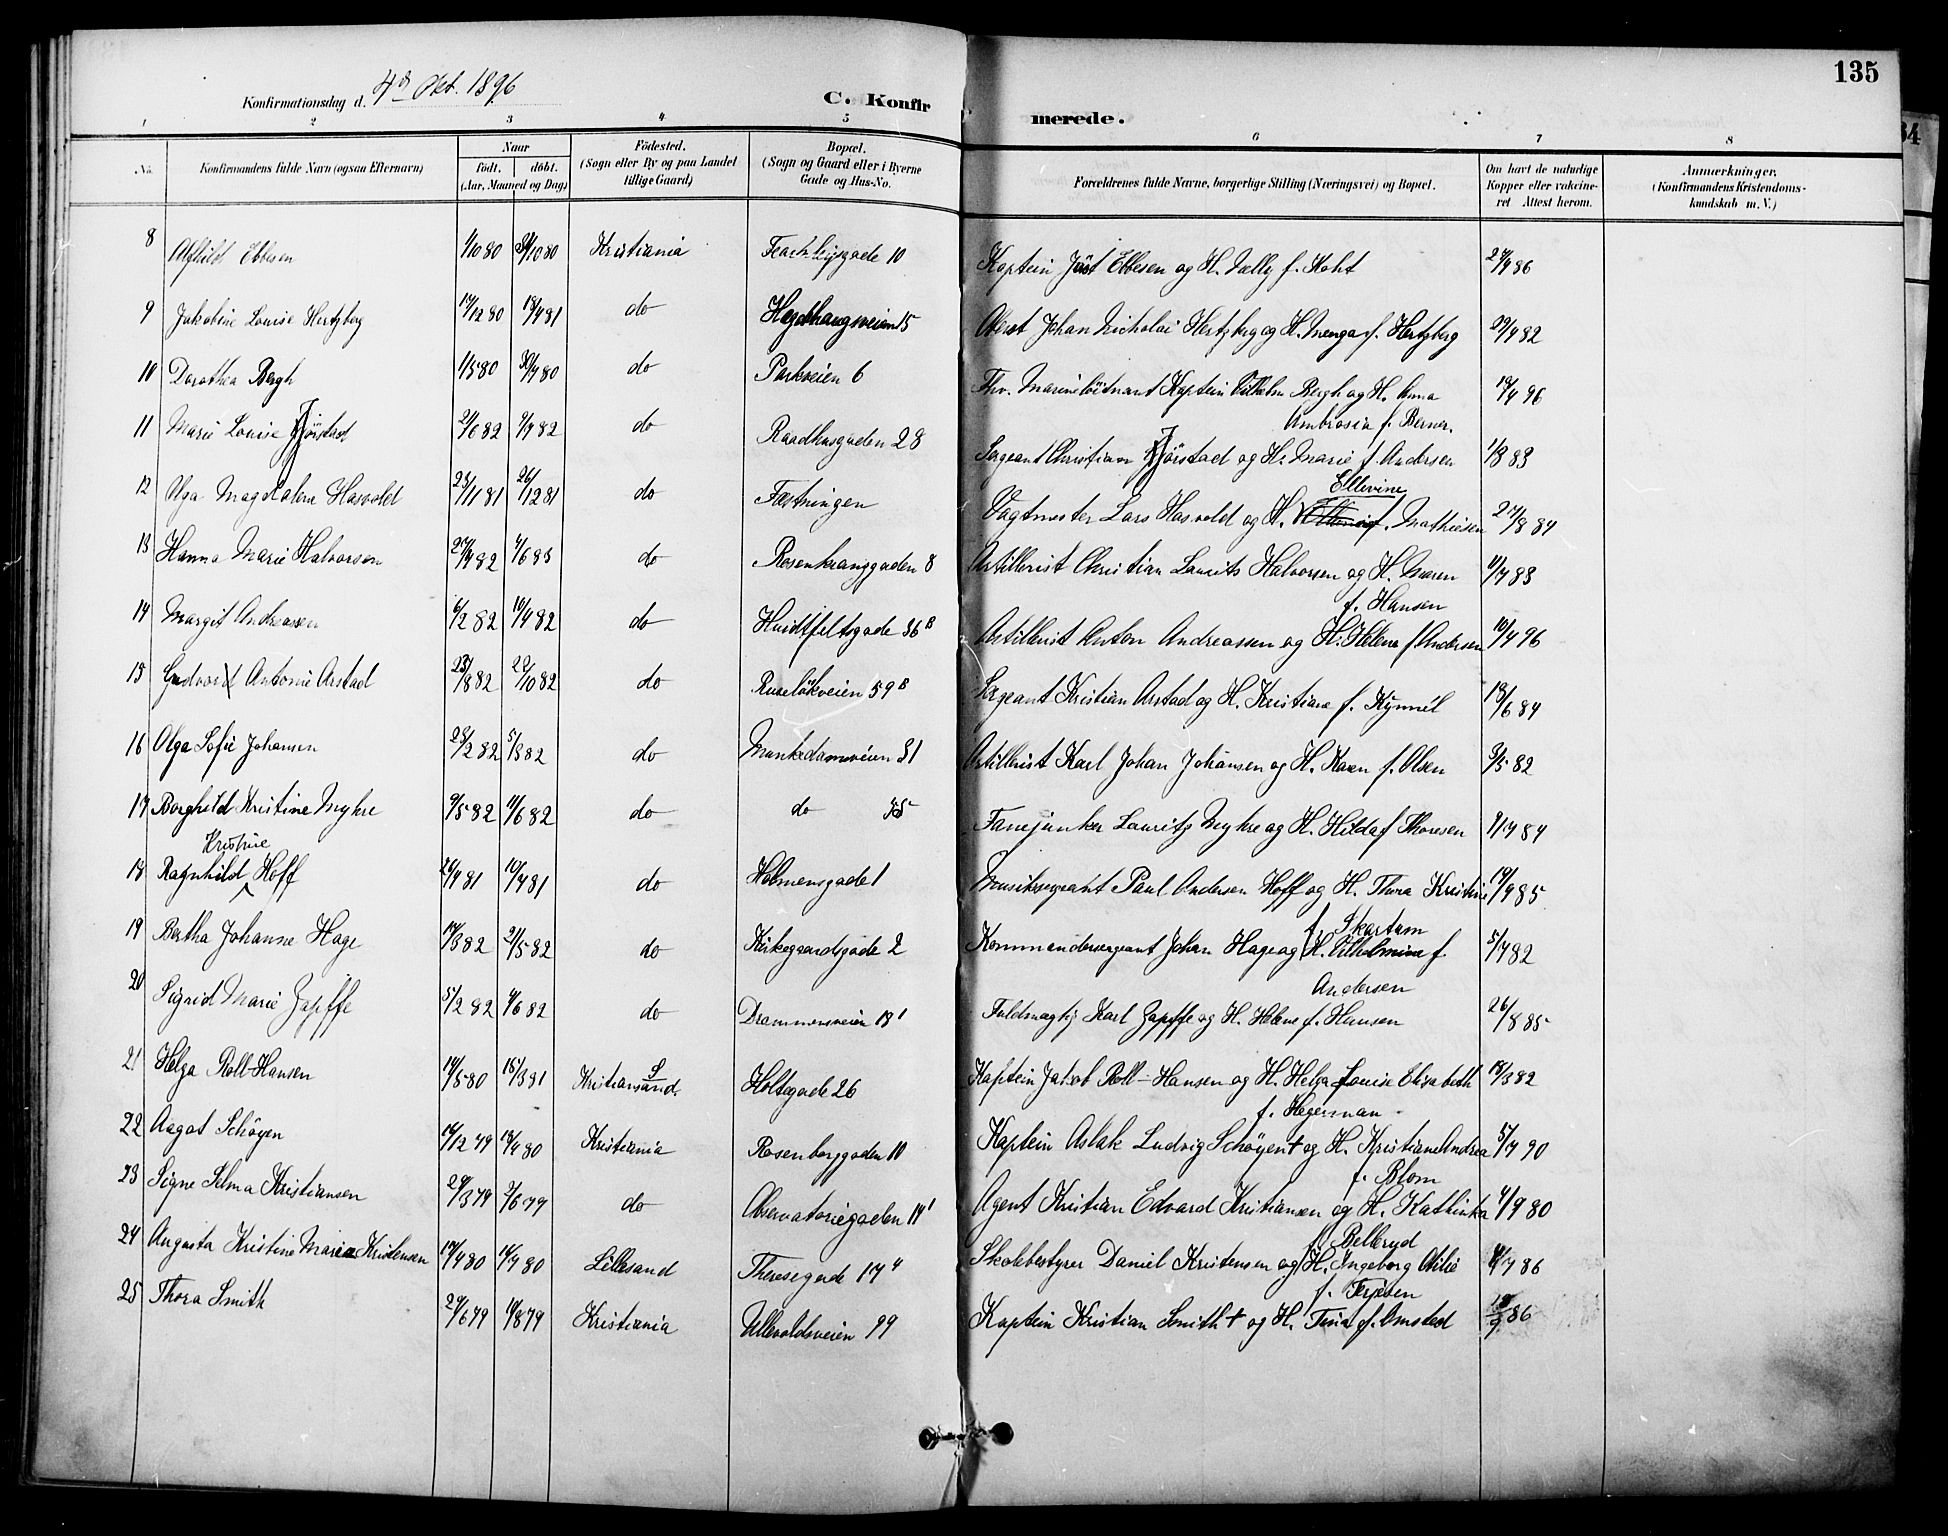 135
Konfirmationsdag d. 4de Okt. 1896
C. Konfirmerede.
1 2 3 4 5 6 7 8
No. Konfirmandens fulde Navn (ogsaa Efternavn) Naar født. døbt. (Aar, Maaned og Dag) Födested. (Sogn eller By og paa Landet tillige Gaard) Bopæl. (Sogn og Gaard eller i Byerne Gade og Hus-No. Forældrenes fulde Navne, borgerlige Stilling (Næringsvei) og Bopæl. Om havt de naturlige Kopper eller vakcineret Attest herom. Anmærkninger. (Konfirmandens Kristendomskundskab m. V.)
8 Alfhild Ebbesen 1/10 80 /10 80 Kristiania 10 Kaptein Just Ebbesen og H. Vally f. Koht 27/9 86
9 Jakobine Louise Hertzberg 17/12 80 18/4 81 do Hegdehaugsveien 15 Oberst Johan Nicholai Hertzberg og H. Menga f. Hertzberg 29/9 82
10 Dorothea Bergh 1/5 80 30/7 80 do Parkveien 6 Fhv. Marineløitnant Kaptein Vilhelm Bergh og H. Anna Ambrosia f. Berner. 19/4 96
11 Marie Louise Fjörstad 2/6 82 9/7 82 do Raadhusgaden 28 Sergeant Christian Fjörstad og H. Marie f. Andersen 1/3 83
12 Olga Magdalene Hasvold 23/11 81 26/12 81 do Fæstningen Vagtmester Lars Hasvold og H. Ellevine f. Mathiesen 27/8 84
13 Hanna Marie Halvorsen 27/4 82 4/6 83 do Rosenkranzgaden 8 Artillerist Christian Laurits Halvorsen og H. Maren f. Hansen 11/7 83
14 Margit Andreassen 6/2 82 10/4 82 do Huidtfeltsgade 36 B Artillerist Anton Andreassen og H. Helene f Andersen 10/4 96
15 Gudvord Antonie Arstad 23/8 82 22/10 82 do Ruseløkveien 59 B Sergeant Kristian Arstad og H. Kristiane f. Kynnel 19/6 84
16 Olga Sofie Johansen 23/2 82 5/3 82 do Munkedamsveien 31 Artillerist Karl Johan Johansen og H. Karen f. Olsen 3/5 82
17 Borghild Kristine Myhre 9/5 82 11/6 82 do do 35 Fanejunker Lauritz Myhre og H. Hilda f Thoresen 9/7 84
18 Ragnhild Kristine Hoff 24/4 81 10/7 81 do Holmensgade 1 Musiksergeant Paul Andersen Hoff og H. Thora Kristine f. Skartum 19/9 85
19 Bertha Johanne Hage 17/3 82 21/5 82 do Kirkegaardsgade 2 Kommandersergeant Johan Hage og H. Vilhelmine f. Andersen 5/7 82
20 Sigrid Marie Zapffe 5/2 82 4/6 82 do Drammensveien 13 I Fuldmægtig Karl Zapffe og H. Helene f. Hansen 26/8 85
21 Helga Roll-Hansen 14/5 80 15/3 81 Kristianssand. Holtegade 26 Kaptein Jakob Roll-Hansen og H. Helga Louise Elisabeth f. Hagerman 18/3 82
22 Aagot Schøyen 14/12 79 18/4 80 Kristiania Rosenborggaden 10 Kaptein Aslak Ludvig Schøyen + og H. Kristiane Andrea f. Blom 5/7 90
23 Signe Selma Kristiansen 29/3 79 2/6 79 do Observatoriegaden 14 I Agent Kristian Edvard Kristiansen og H. Kathinka f Belleryd 4/9 80
24 Augusta Kristine Marie Kristensen 17/4 80 14/7 80 Lillesand Theresegade 17 II Skolebestyrer Daniel Kristensen og H. Ingeborg Otilie f. Terjesen 11/7 86
25 Thora Smith 24/6 79 14/8 79 Kristiania Ullevoldsveien 99 Kaptein Kristian Smith + og H. Tina f. Omsted 18/9 86